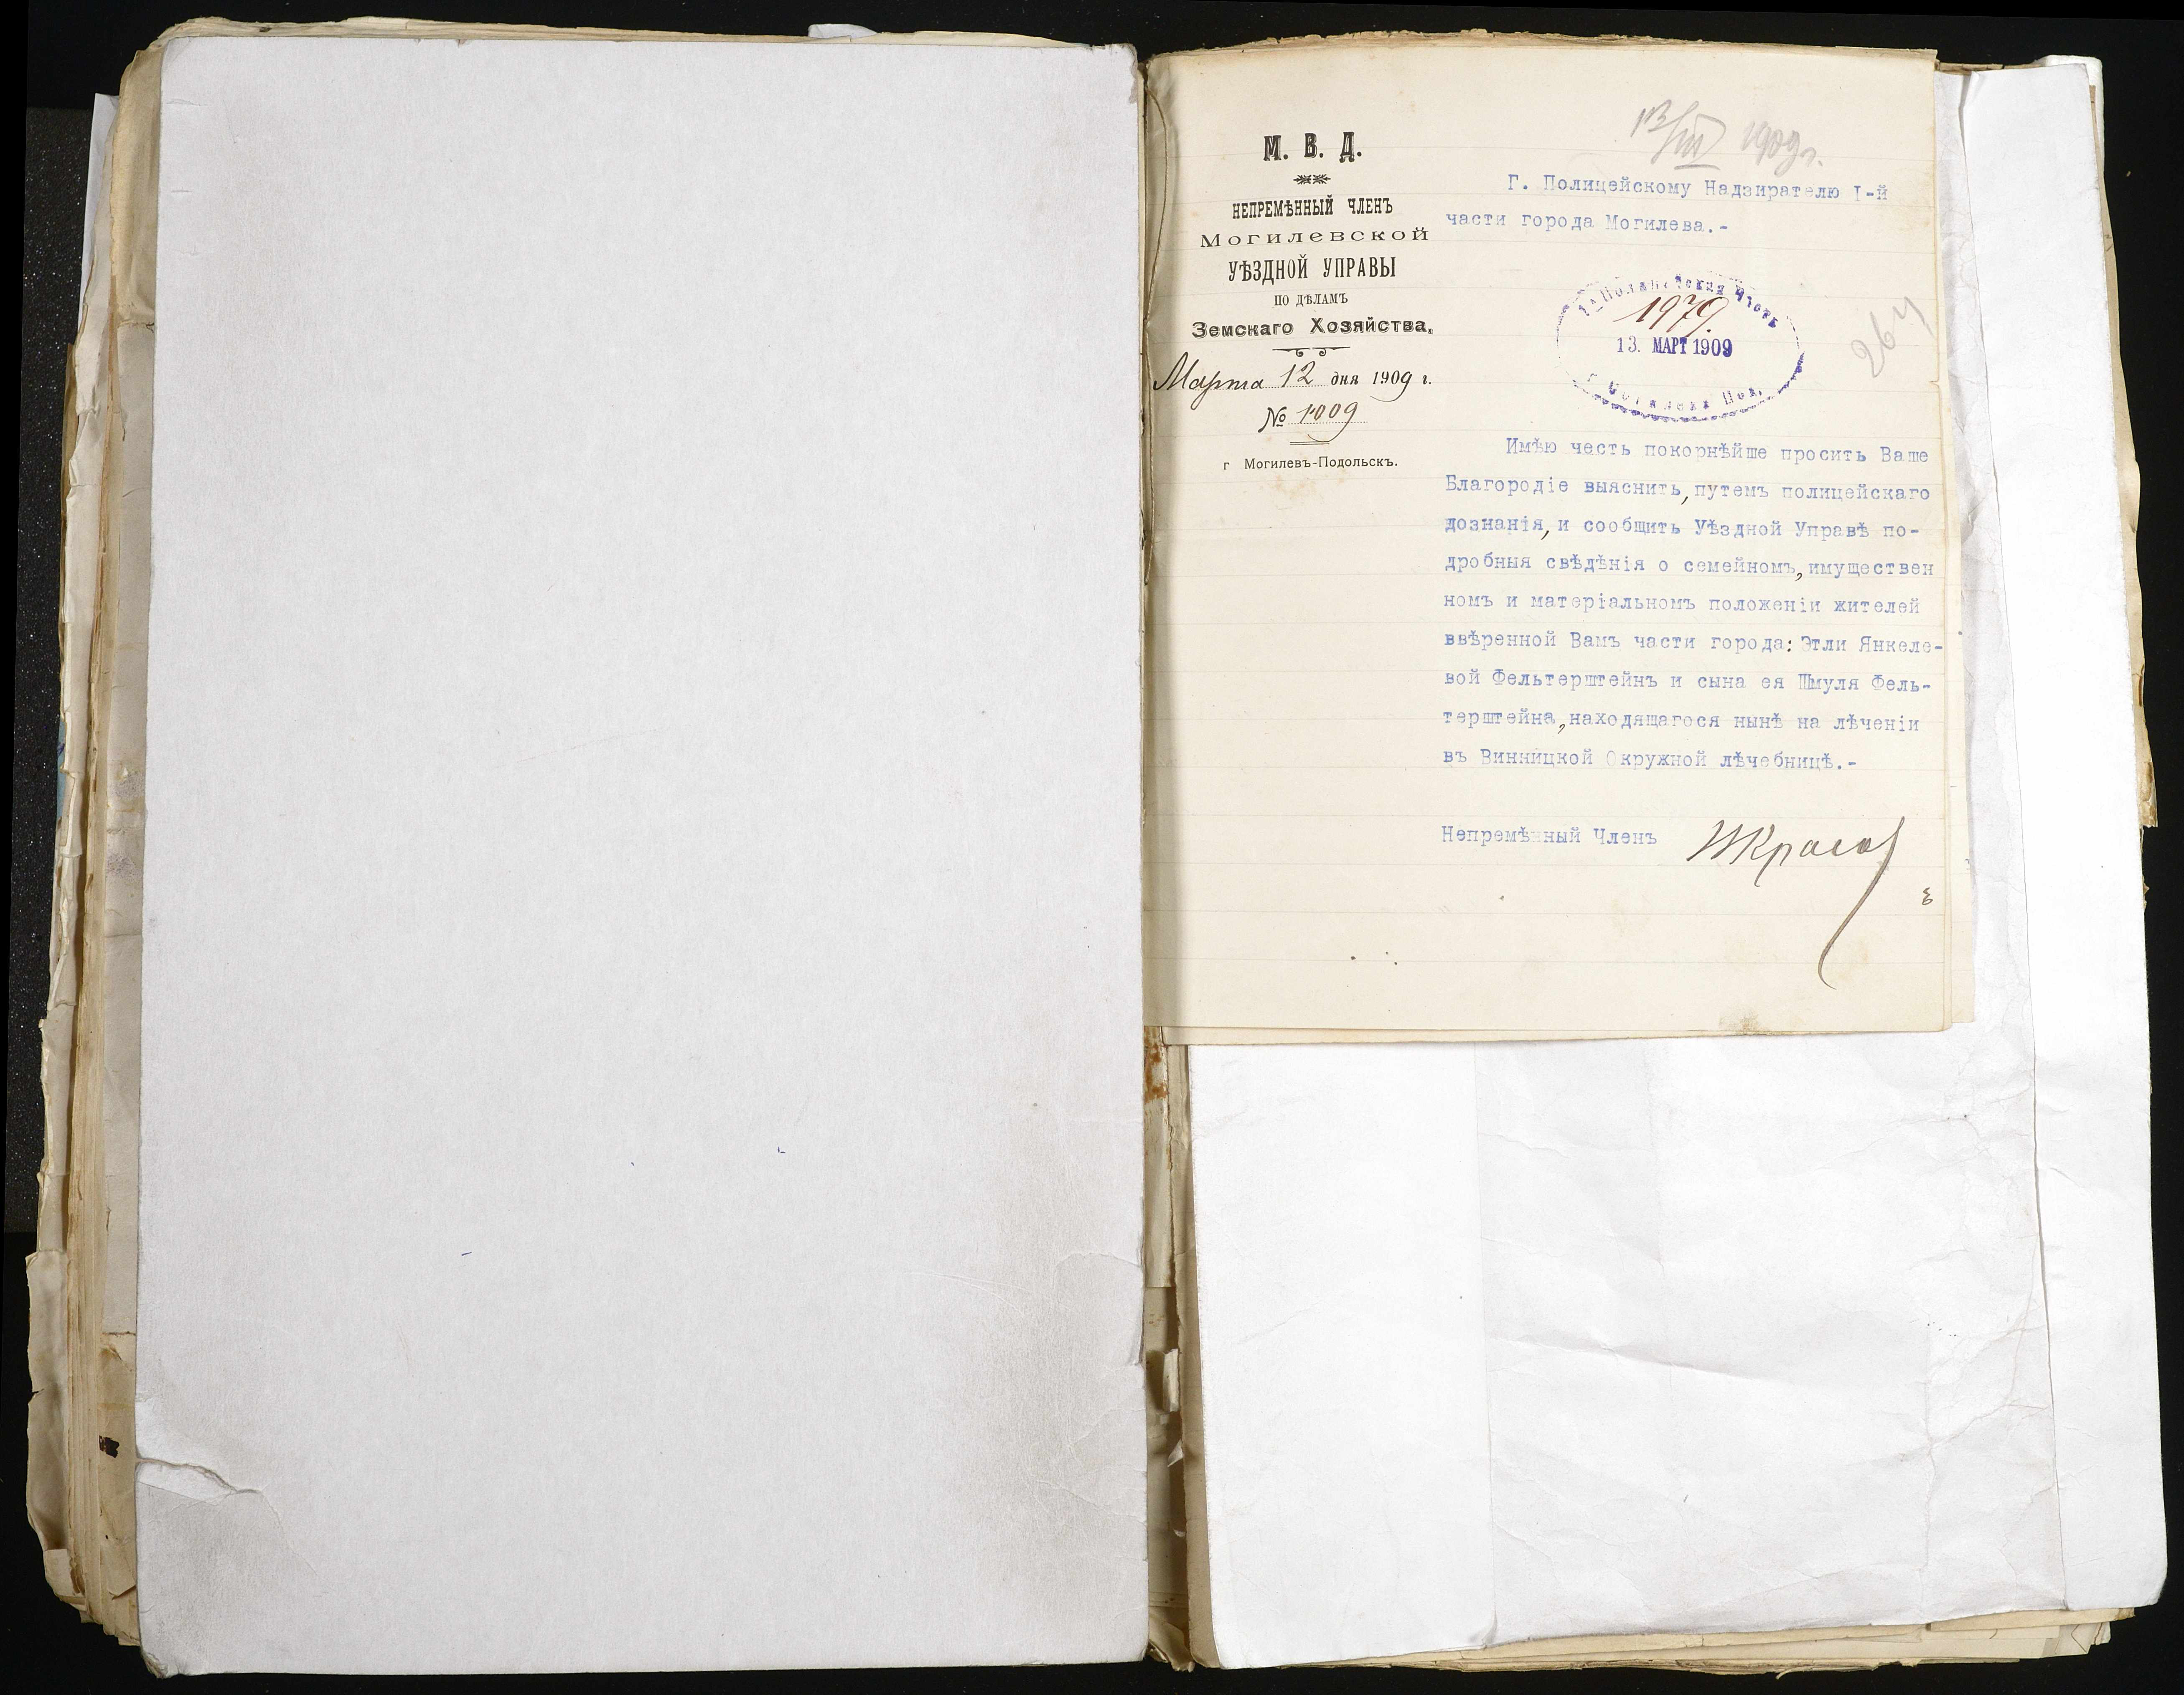 М. В. Д.
НЕПРЕМѢННЫЙ ЧЛЕНЪ
Могилевской
УѢЗДНОЙ УПРАВЫ
ПО ДѢЛАМЪ
Земскаго Хозяйства.
Марта 12 дня 1909 г.
№ 1009
г Могилевъ-Подольскъ.
13/III 1909 г.
Г. Полицейскому Надзирателю I-й
части города Могилева.-
1я Полицейская Часть
1979
13. МАРТ 1909
г. Могилева Под.
264
Имѣю честь покорнѣйше просить Ваше
Благородіе выяснить, путемъ полицейскаго
дознанія, и сообщить Уѣздной Управѣ по-
дробныя свѣдѣнія о семейномъ, имуществен
номъ и матеріальномъ положеніи жителей
ввѣренной Вамъ части города: Этли Янкеле-
вой Фельтерштейнъ и сына ея Шмуля Фель-
терштейна, находящагося нынѣ на лѣченіи
въ Винницкой Окружной лѣчебницѣ.-
Непремѣнный Членъ